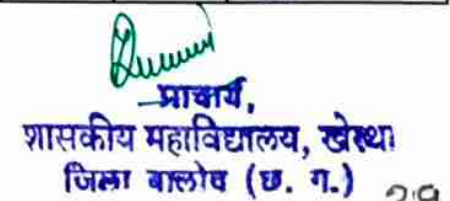 प्राचार्य,
शासकीय महाविद्यालय, खेरथा
जिला बालोद (छ. ग.) 29